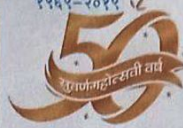 १९६९-२०१९
50
सुवर्णमहोत्सवी वर्ष